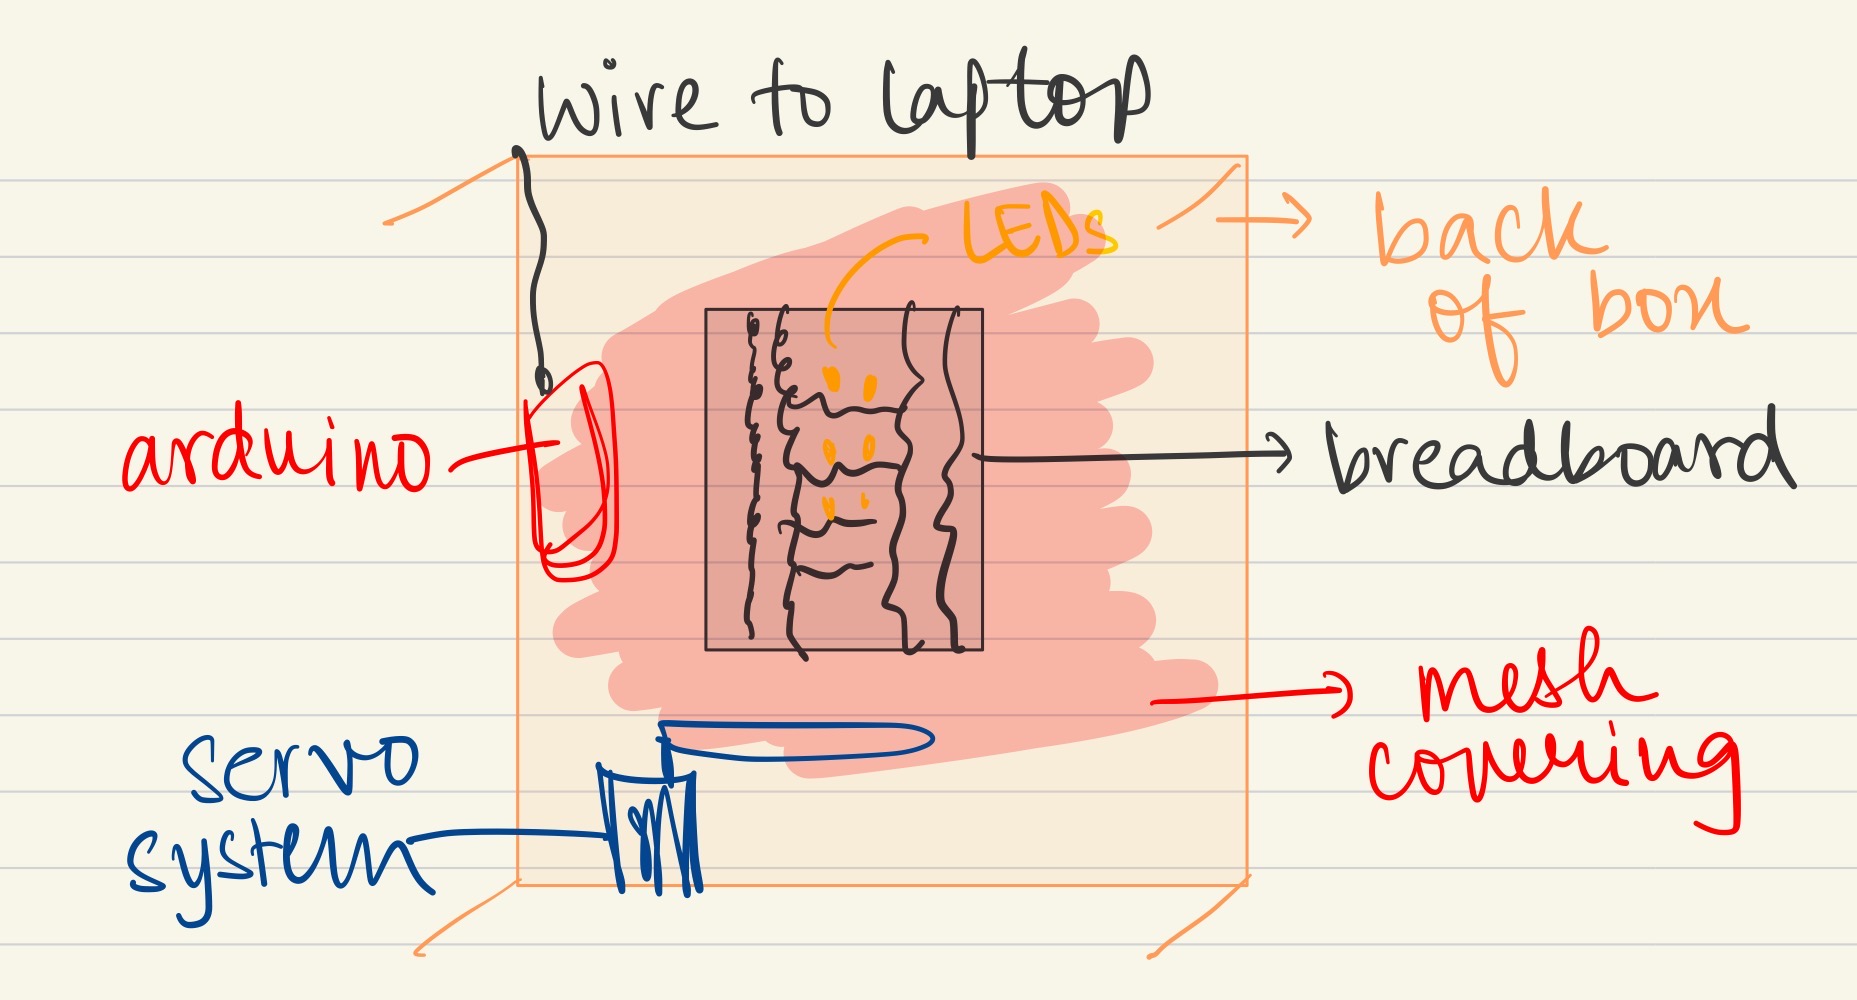 wire to laptop
LEDs
back
of box
arduino
breadboard
mesh
covering
servo
system